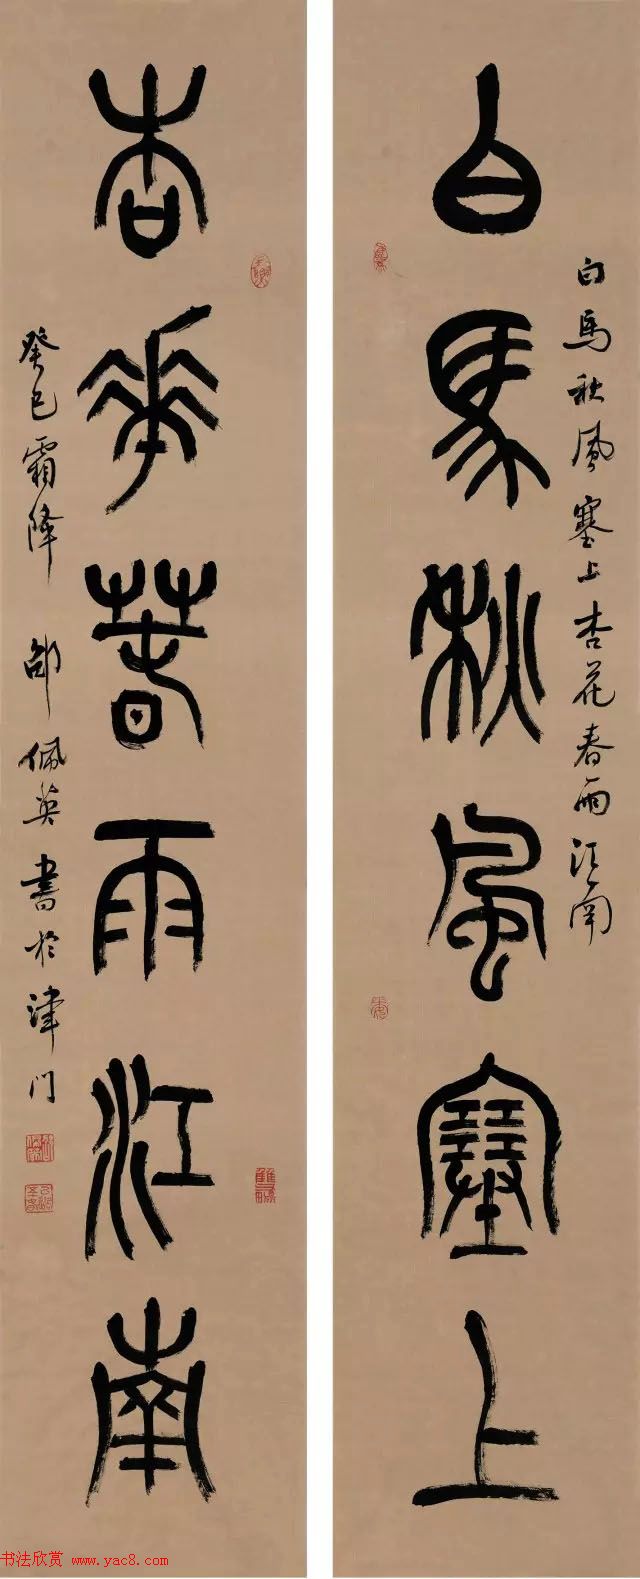 白馬秋風塞上
白馬秋風塞上杏花春雨江南
杏華萅雨江南
癸巳霜降 邵佩英書於津门
书法欣赏 www.yac8.com